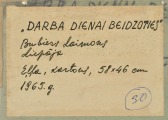 "DARBA DIENAI BEIDZOTIES"
Bubiers Laimons
Liepāja
Eļļa, kartons, 58x46 cm
1965. g.
30